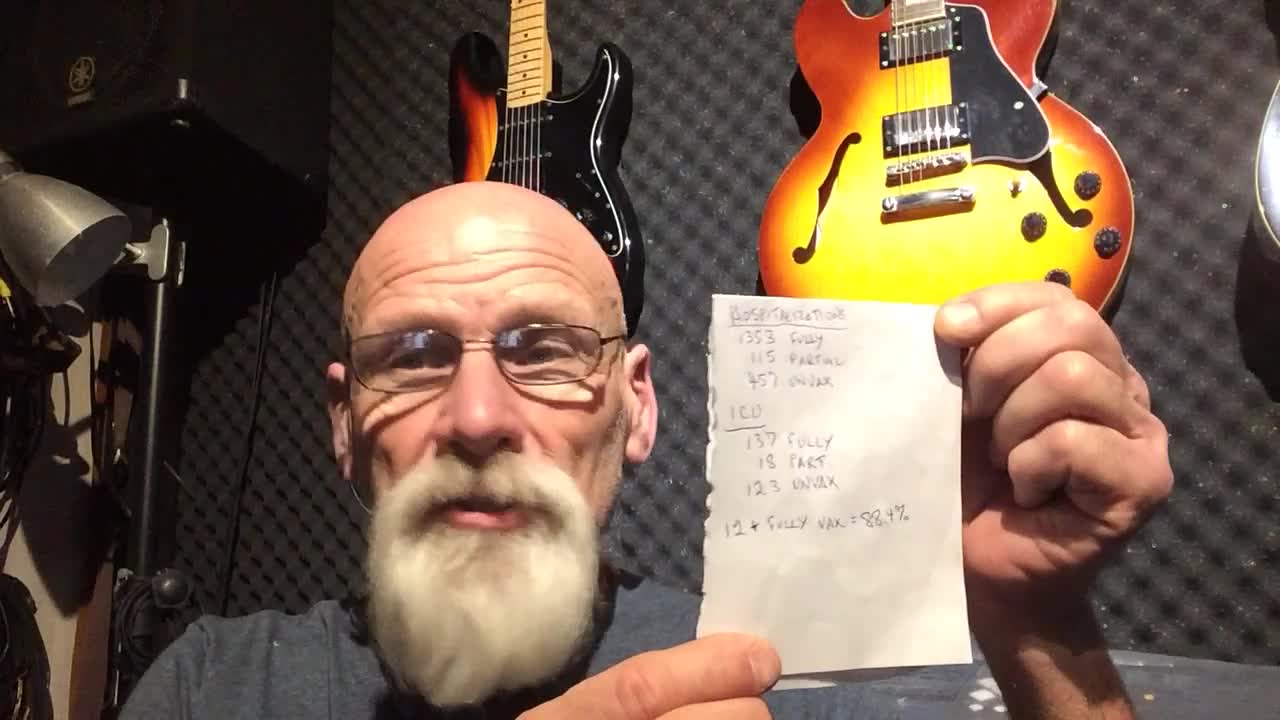 HOSPITALIZATIONS
1353 FULLY
115 PARTIAL
457 UNVAX
ICU
137 FULLY
18 PART
123 UNVAX
12+ FULLY VAX = 88.4%